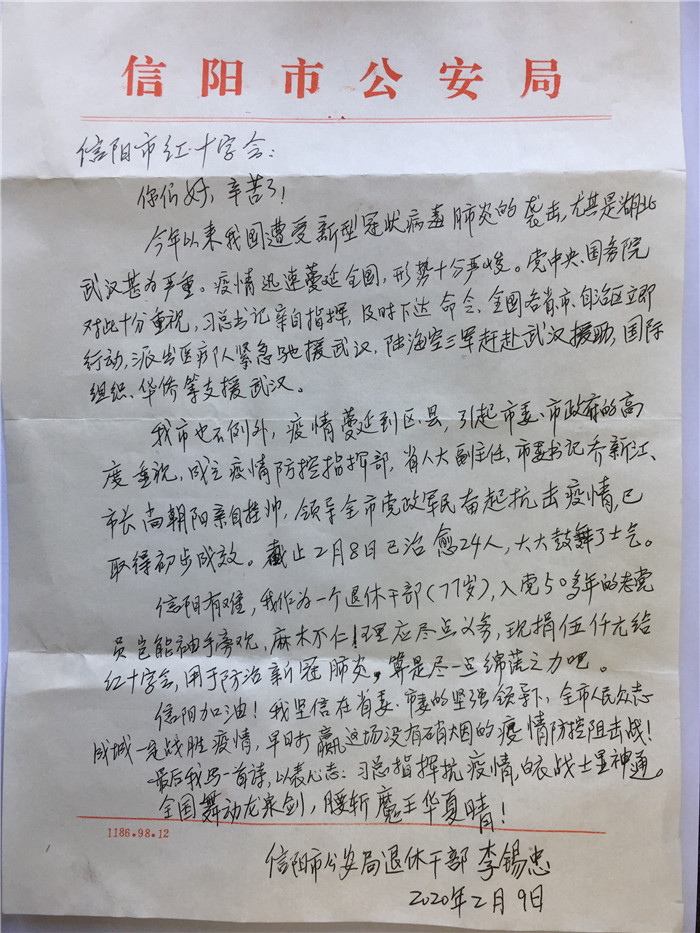 信阳市公安局
信阳市红十字会：
你们好，辛苦了！
今年以来我国遭受新型冠状病毒肺炎的袭击，尤其是湖北
武汉甚为严重。疫情迅速蔓延全国，形势十分严峻。党中央、国务院
对此十分重视，习总书记亲自指挥，及时下达命令，全国各省市、自治区立即
行动，派出医疗队紧急驰援武汉，陆海空三军赶赴武汉援助，国际
组织、华侨等支援武汉。
我市也不例外，疫情蔓延到区县，引起市委、市政府的高
度重视，成立疫情防控指挥部，省人大副主任、市委书记乔新江、
市长尚朝阳亲自挂帅，领导全市党政军民奋起抗击疫情，已
取得初步成效。截止2月8日已治愈24人，大大鼓舞了士气。
信阳有难，我作为一个退休干部（77岁），入党50多年的老党
员岂能袖手旁观，麻木不仁！理应尽点义务，现捐伍仟元给
红十字会，用于防治新冠肺炎，算是尽一点绵薄之力吧。
信阳加油！我坚信在省委、市委的坚强领导下，全市人民众志
成城一定战胜疫情，早日打赢这场没有硝烟的疫情防控阻击战！
最后我写一首诗，以表心志：习总指挥抗疫情，白衣战士显神通。
全国舞动龙泉剑，腰斩魔王华夏晴！
1186·98·12
信阳市公安局退休干部 李锡忠
2020年2月9日